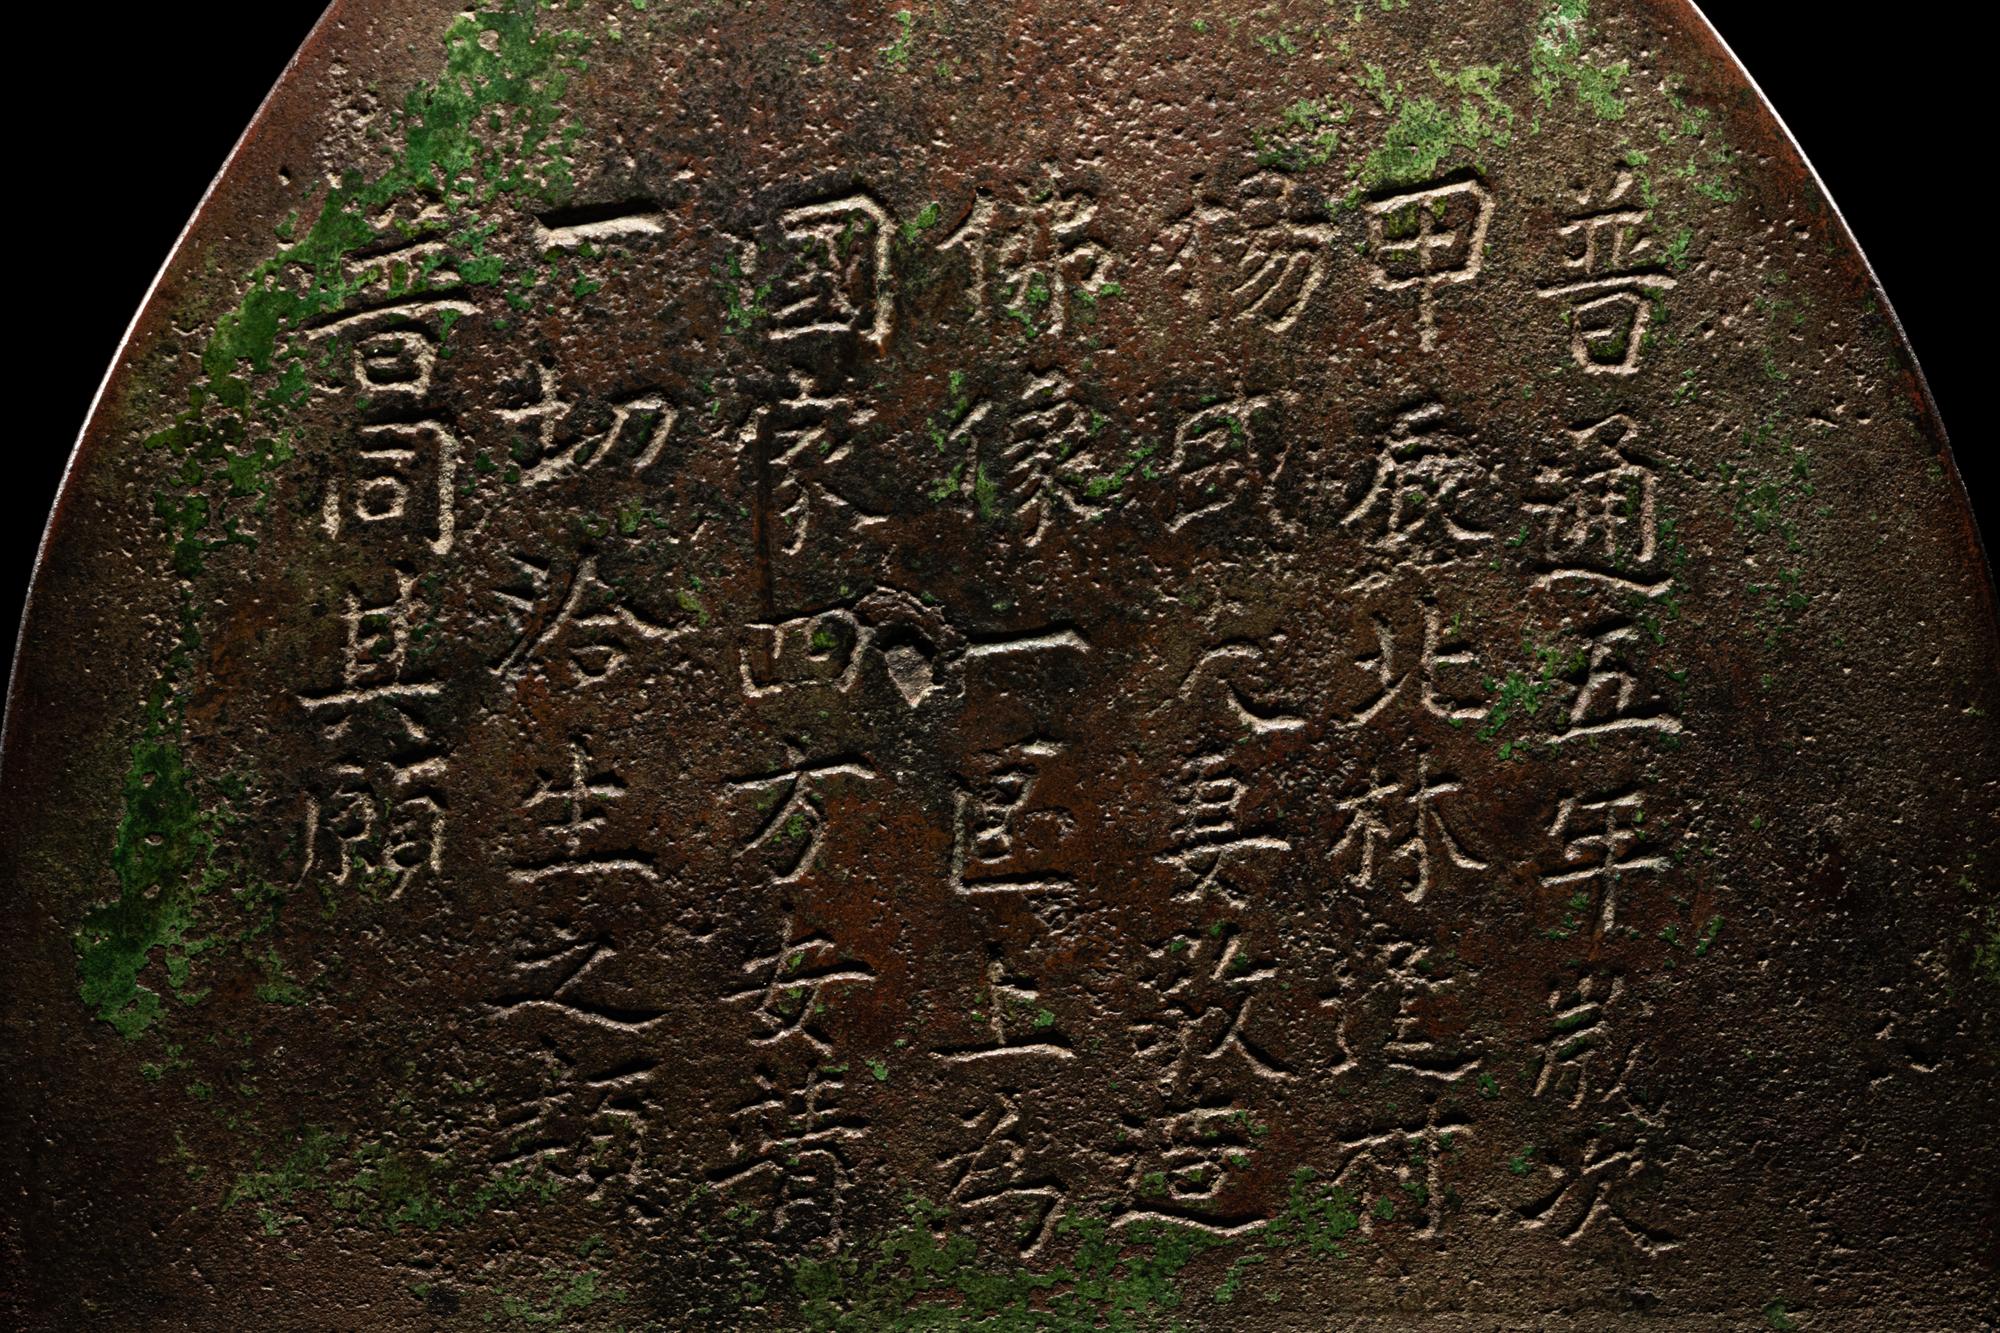 普通五年歲次
甲辰北林遷村
楊或之妻敬造
佛像一區上為
國家四方安清
一切洽生之類
普同其願